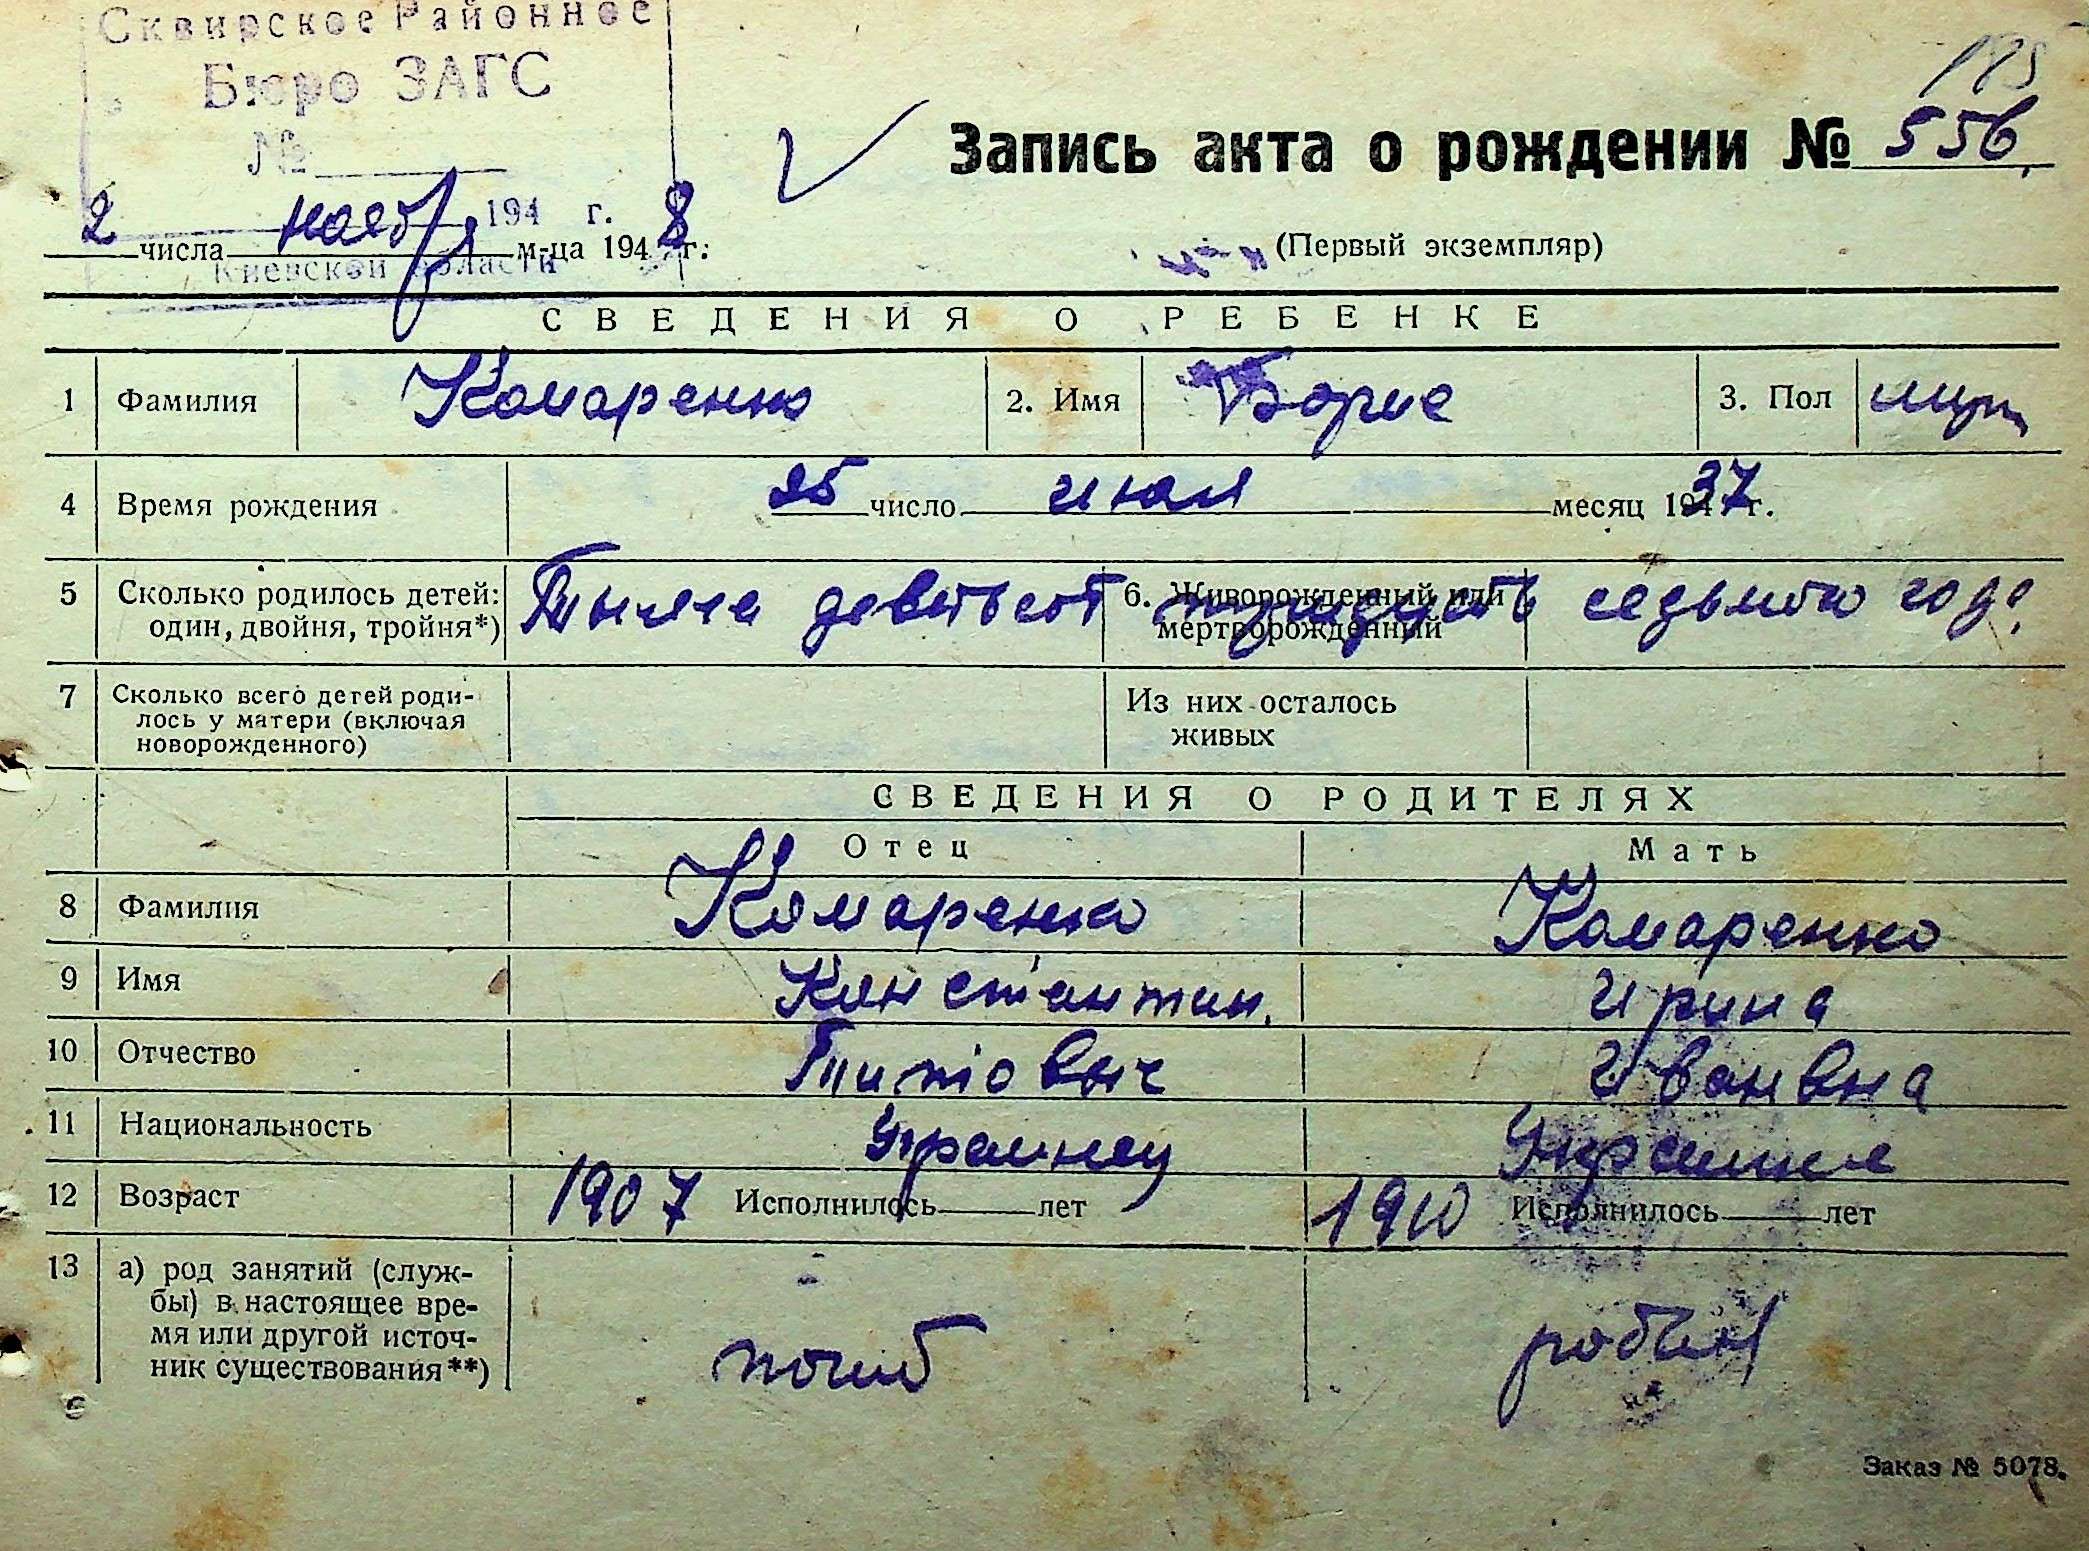 Сквирское Районное
Бюро ЗАГС
№
185
Запись акта о рождении № 556
194 г.
2 числа ноября м-ца 1948 г.
Киевской области
(Первый экземпляр)
СВЕДЕНИЯ О РЕБЕНКЕ
1 Фамилия Комаренко 2. Имя Борис 3. Пол муж
4 Время рождения 25 число июля месяц 1937 г.
5 Сколько родилось детей: один, двойня, тройня*) Тысяча девятьсот 6. Живорожденный или тридцать седьмого года
мертворожденный
7 Сколько всего детей роди-
лось у матери (включая
новорожденного)
Из них осталось
живых
СВЕДЕНИЯ О РОДИТЕЛЯХ
Отец Мать
8 Фамилия Комаренко Комаренко
9 Имя Константин. Ирина
10 Отчество Титович Иванвна
11 Национальность
12 Возраст 1907 Исполнилось лет 1910 Исполнилось лет
13 а) род занятий (служ-
бы) в настоящее вре-
мя или другой источ-
ник существования**)
погиб
Заказ № 5078.